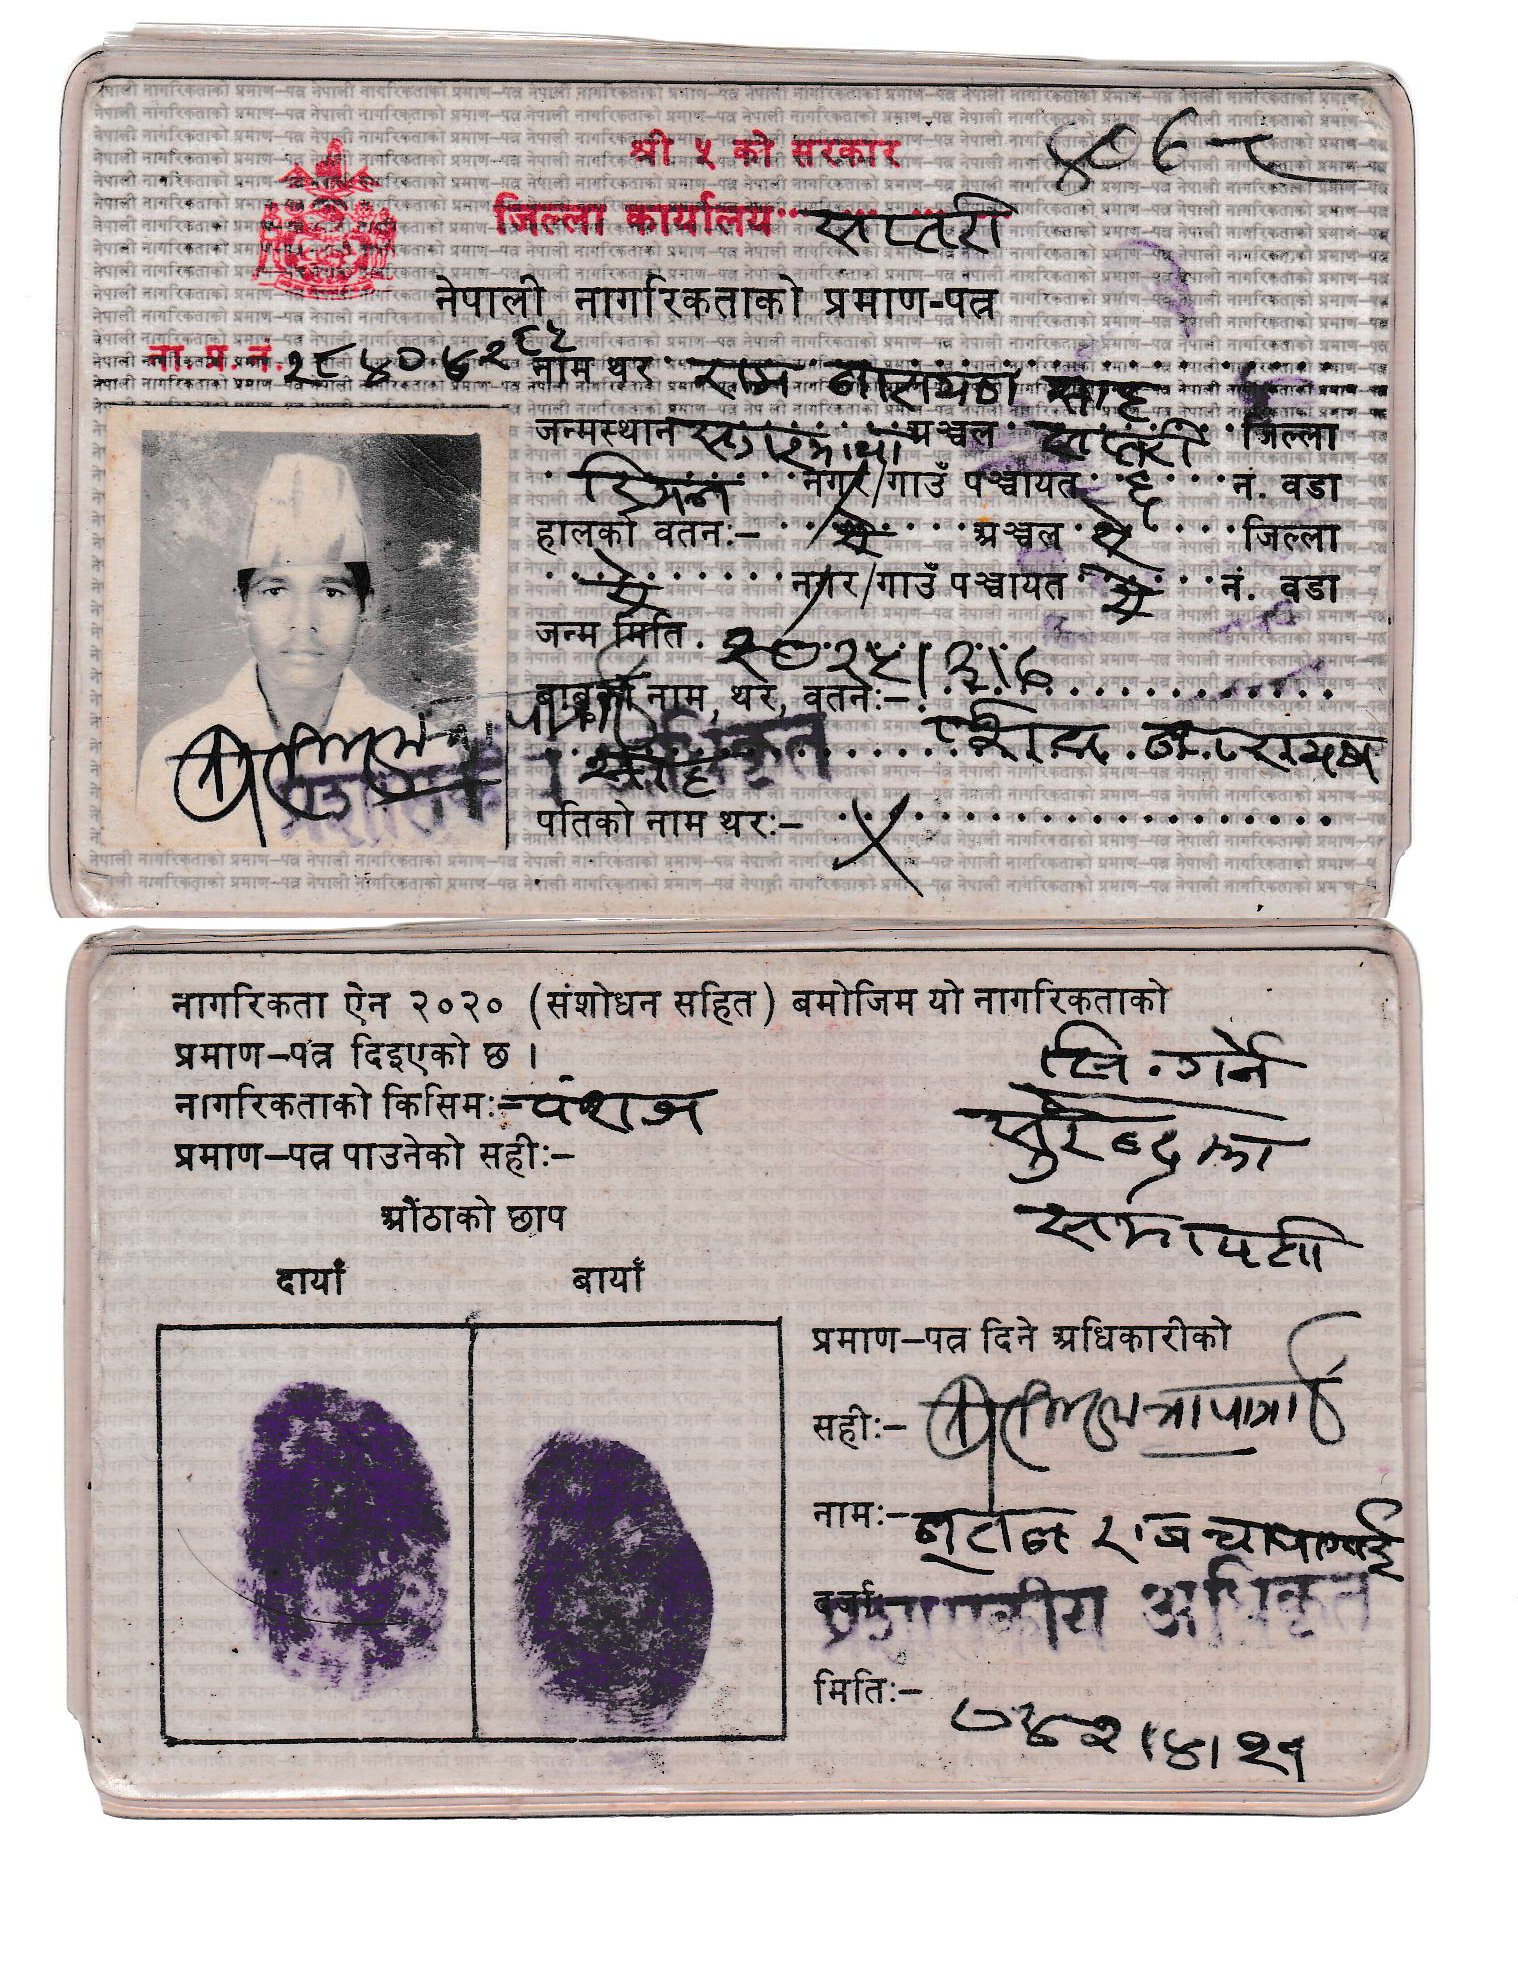 श्री ५ को सरकार
जिल्ला कार्यालय सप्तरी
नेपाली नागरिकताको प्रमाण-पत्र
ना. प्र. नं.
नाम थर राम नारायण साह
जन्मस्थान सगरमाथा अञ्चल सप्तरी जिल्ला
नगर/गाउँ पञ्चायत ६ नं. वडा
हालको वतन:- ऐ अञ्चल ऐ जिल्ला
ऐ नगर/गाउँ पञ्चायत ऐ नं. वडा
जन्म मिति २०२५।३।७
बाबुको नाम, थर, वतन:-
नारायण
साह
पतिको नाम थर:- ×
नागरिकता ऐन २०२० (संशोधन सहित) बमोजिम यो नागरिकताको
प्रमाण-पत्र दिइएको छ ।
नागरिकताको किसिम:- वंशज
प्रमाण-पत्र पाउनेको सही:-
औंठाको छाप
दायाँ बायाँ
सि. गर्ने
सुरेन्द्र झा
सभापती
प्रमाण-पत्र दिने अधिकारीको
सही:-
नाम:- नुतन राज चापागाई
दर्जा: प्रशासकीय अधिकृत
मिति:-